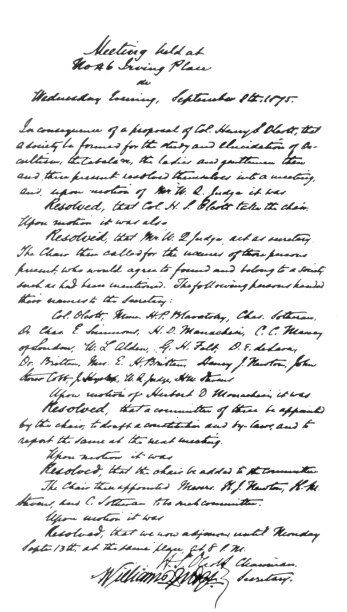 Meeting held at
No 46 Irving Place
on
Wednesday Evening, September 8th, 1875.
In consequence of a proposal of Col. Henry S. Olcott, that
a society be formed for the study and elucidation of Oc-
cultism, the Cabala &c, the ladies and gentlemen then
and there present resolved themselves into a meeting,
and, upon motion of Mr W. Q. Judge it was
Resolved, that Col. H. S. Olcott take the chair.
Upon motion it was also
Resolved, that Mr W. Q. Judge, act as secretary.
The Chair then called for the names of those persons
present, who would agree to found and belong to a society
such as had been mentioned. The following persons handed
their names to the secretary:
Col. Olcott, Mme H. P. Blavatsky, Chas. Sotheran,
Dr Chas. E. Simmons, H. D. Monachesi, C. C. Massey
of London, W. L. Alden, G. H. Felt, D. E. de Lara,
Dr. Britten, Mrs. E. H. Britten, Henry J. Newton, John
Storer Cobb, J. Hyslop, W. Q. Judge, H. M. Stevens
Upon motion of Herbert D. Monachesi it was
Resolved, that a committee of three be appointed
by the chair, to draft a constitution and by-laws, and to
report the same at the next meeting.
Upon motion it was
Resolved, that the chair be added to the committee
The Chair then appointed Messrs H. J. Newton, H. M.
Stevens, and C. Sotheran to be such committee.
Upon motion it was
Resolved, that we now adjourn until Monday
Sept. 13th, at the same place, at 8 P.M.
H. S. Olcott Chairman.
William Q. Judge. Secretary.